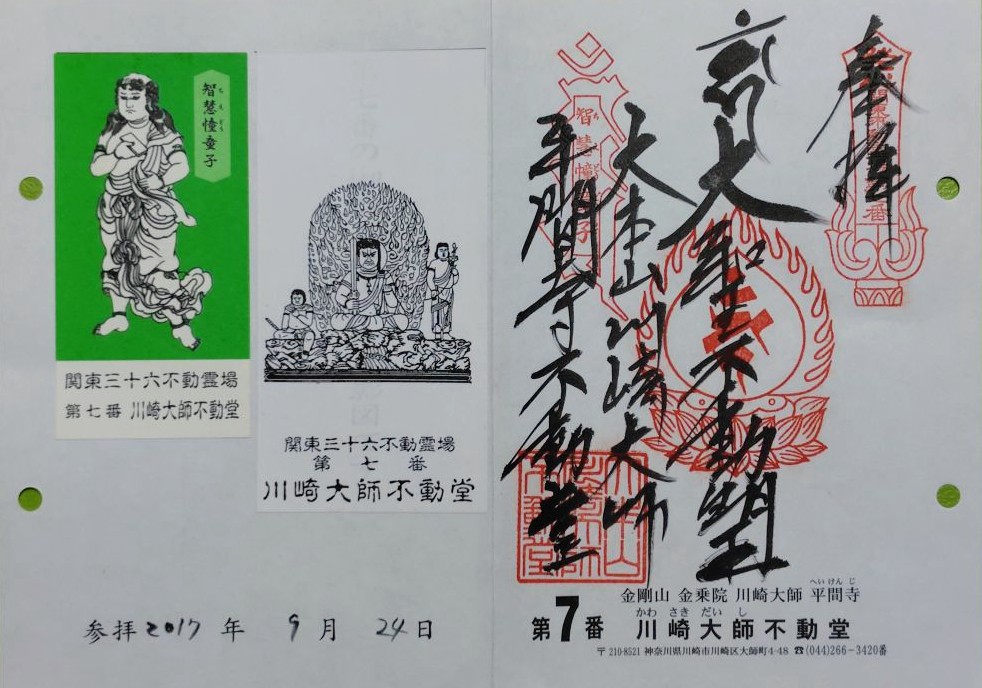 智慧幢童子
ちえどうどうじ
関東三十六不動霊場
第七番 川崎大師不動堂
関東三十六不動霊場
第七番
川崎大師不動堂
参拝2017年 9月 24日
奉拝
大聖不動明王
大本山川崎大師
平間寺不動堂
智慧幢
金剛山 金乗院 川崎大師 平間寺
へいけんじ
かわさきだいし
第7番 川崎大師不動堂
〒210-8521 神奈川県川崎市川崎区大師町4-48 ☎(044)266-3420番